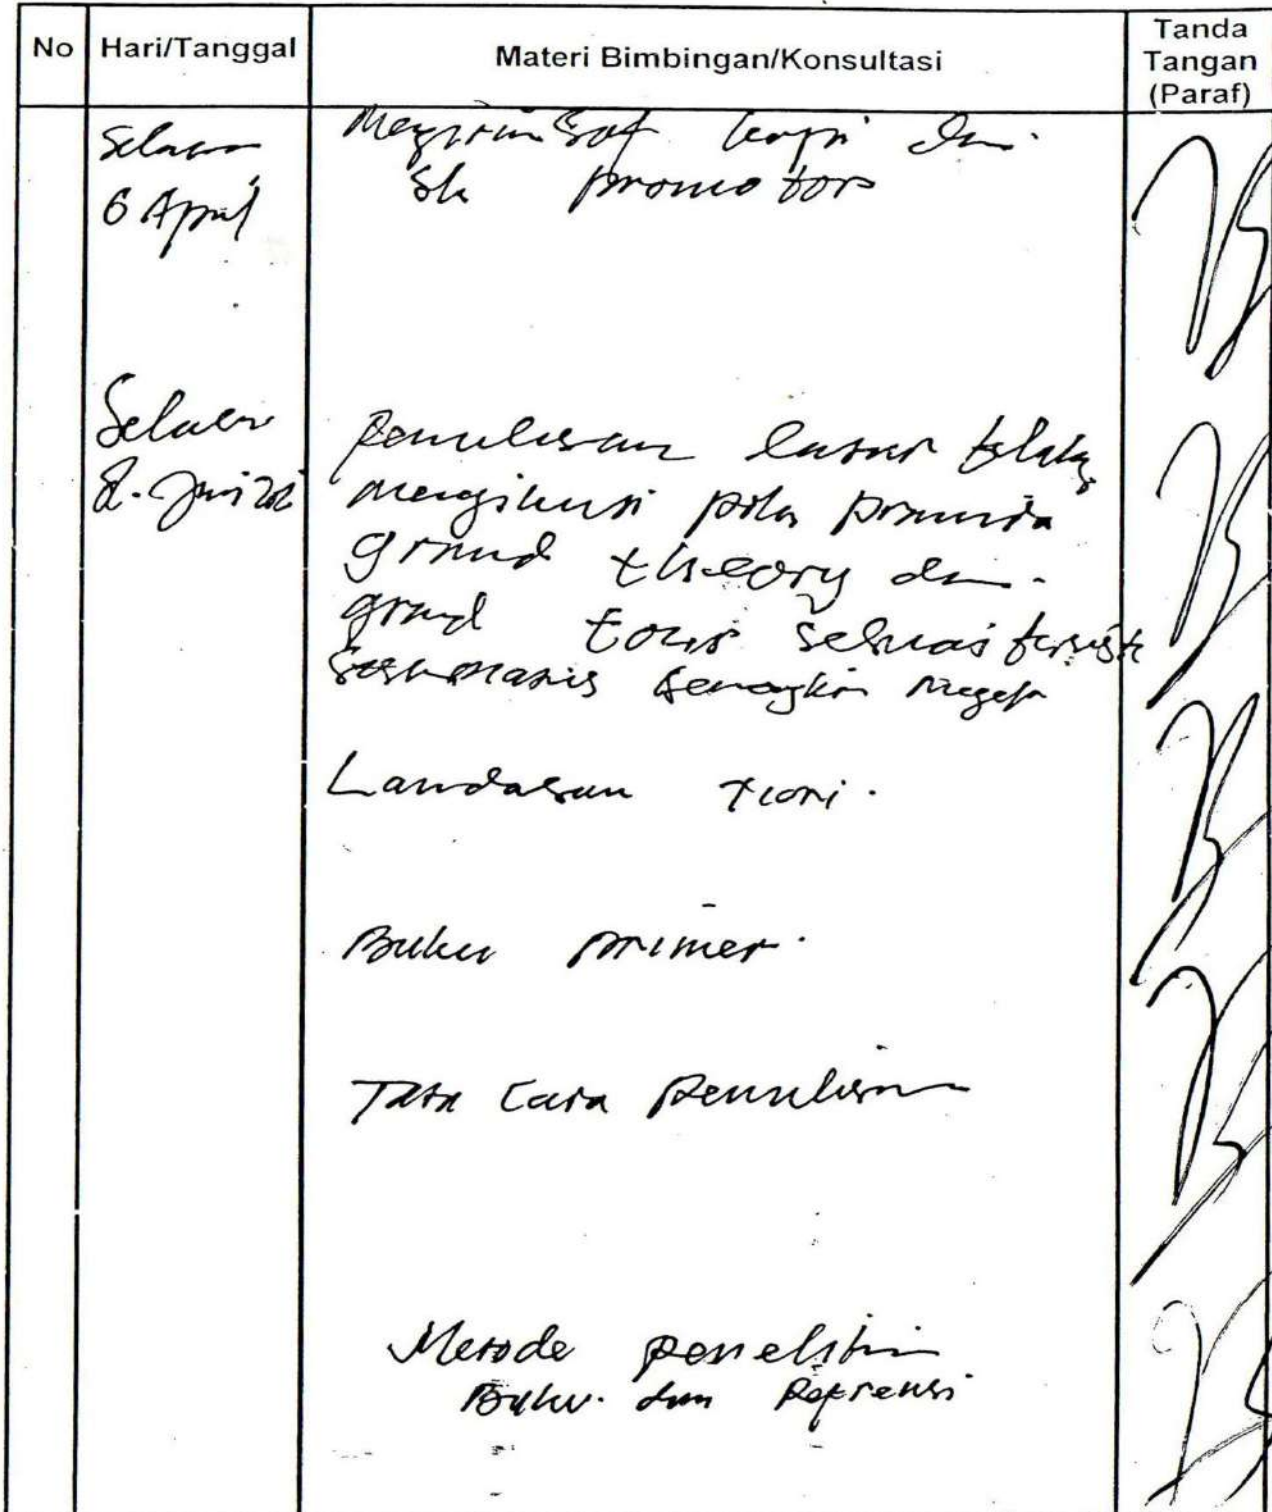 No Hari/Tanggal Materi Bimbingan/Konsultasi Tanda Tangan (Paraf)
Selasa
6 April
Mengirim Sof kopi dan
Sk promotors
Selasa
8. Juni
penulisan latar blkg
mengikuti pola piramida
grand theory dan
grand tour sesuai
Landasan teori.
Buku primer.
Tata Cara penulisan
Metode penelitian
Buku. dan Refrensi